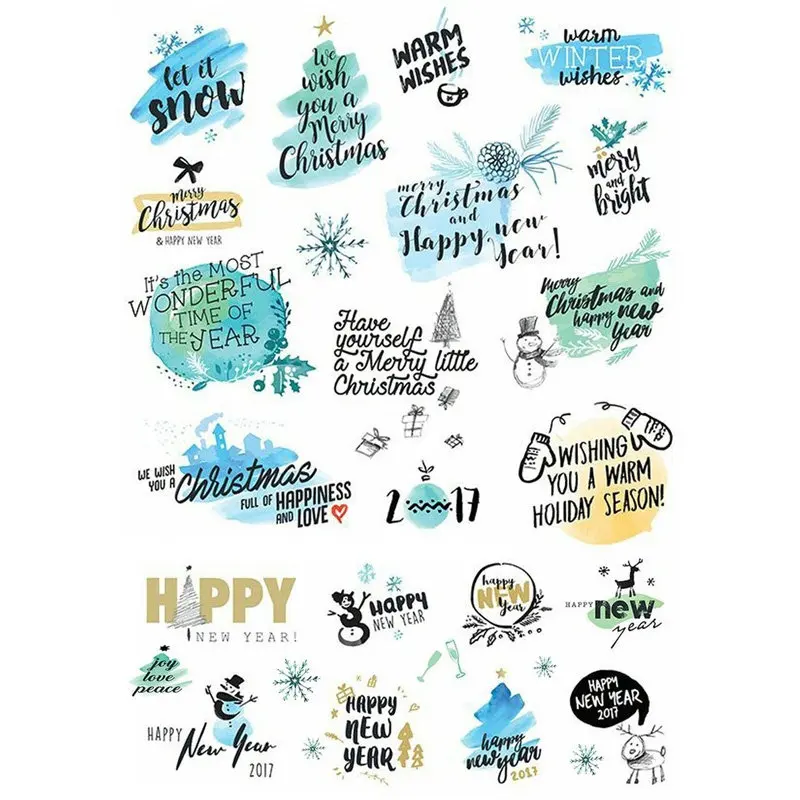 let it
snow
We
wish
you a
Merry
Christmas
WARM
WISHES
warm
WINTER
wishes
merry
Christmas
& HAPPY NEW YEAR
merry
Christmas
and
Happy new
Year!
merry
and
bright
It's the MOST
WONDERFUL
TIME OF
THE YEAR
Have
yourself
a Merry little
Christmas
Merry
Christmas and
happy new
Year
WE WISH
YOU A
Christmas
FULL OF HAPPINESS
AND LOVE
2017
WISHING
YOU A WARM
HOLIDAY SEASON!
HAPPY
NEW YEAR!
HAPPY
NEW YEAR
happy
NEW
Year
HAPPY
new
year
joy
love
peace
HAPPY
New Year
2017
HAPPY
NEW
YEAR
happy
newyear
2017
HAPPY
NEW YEAR
2017